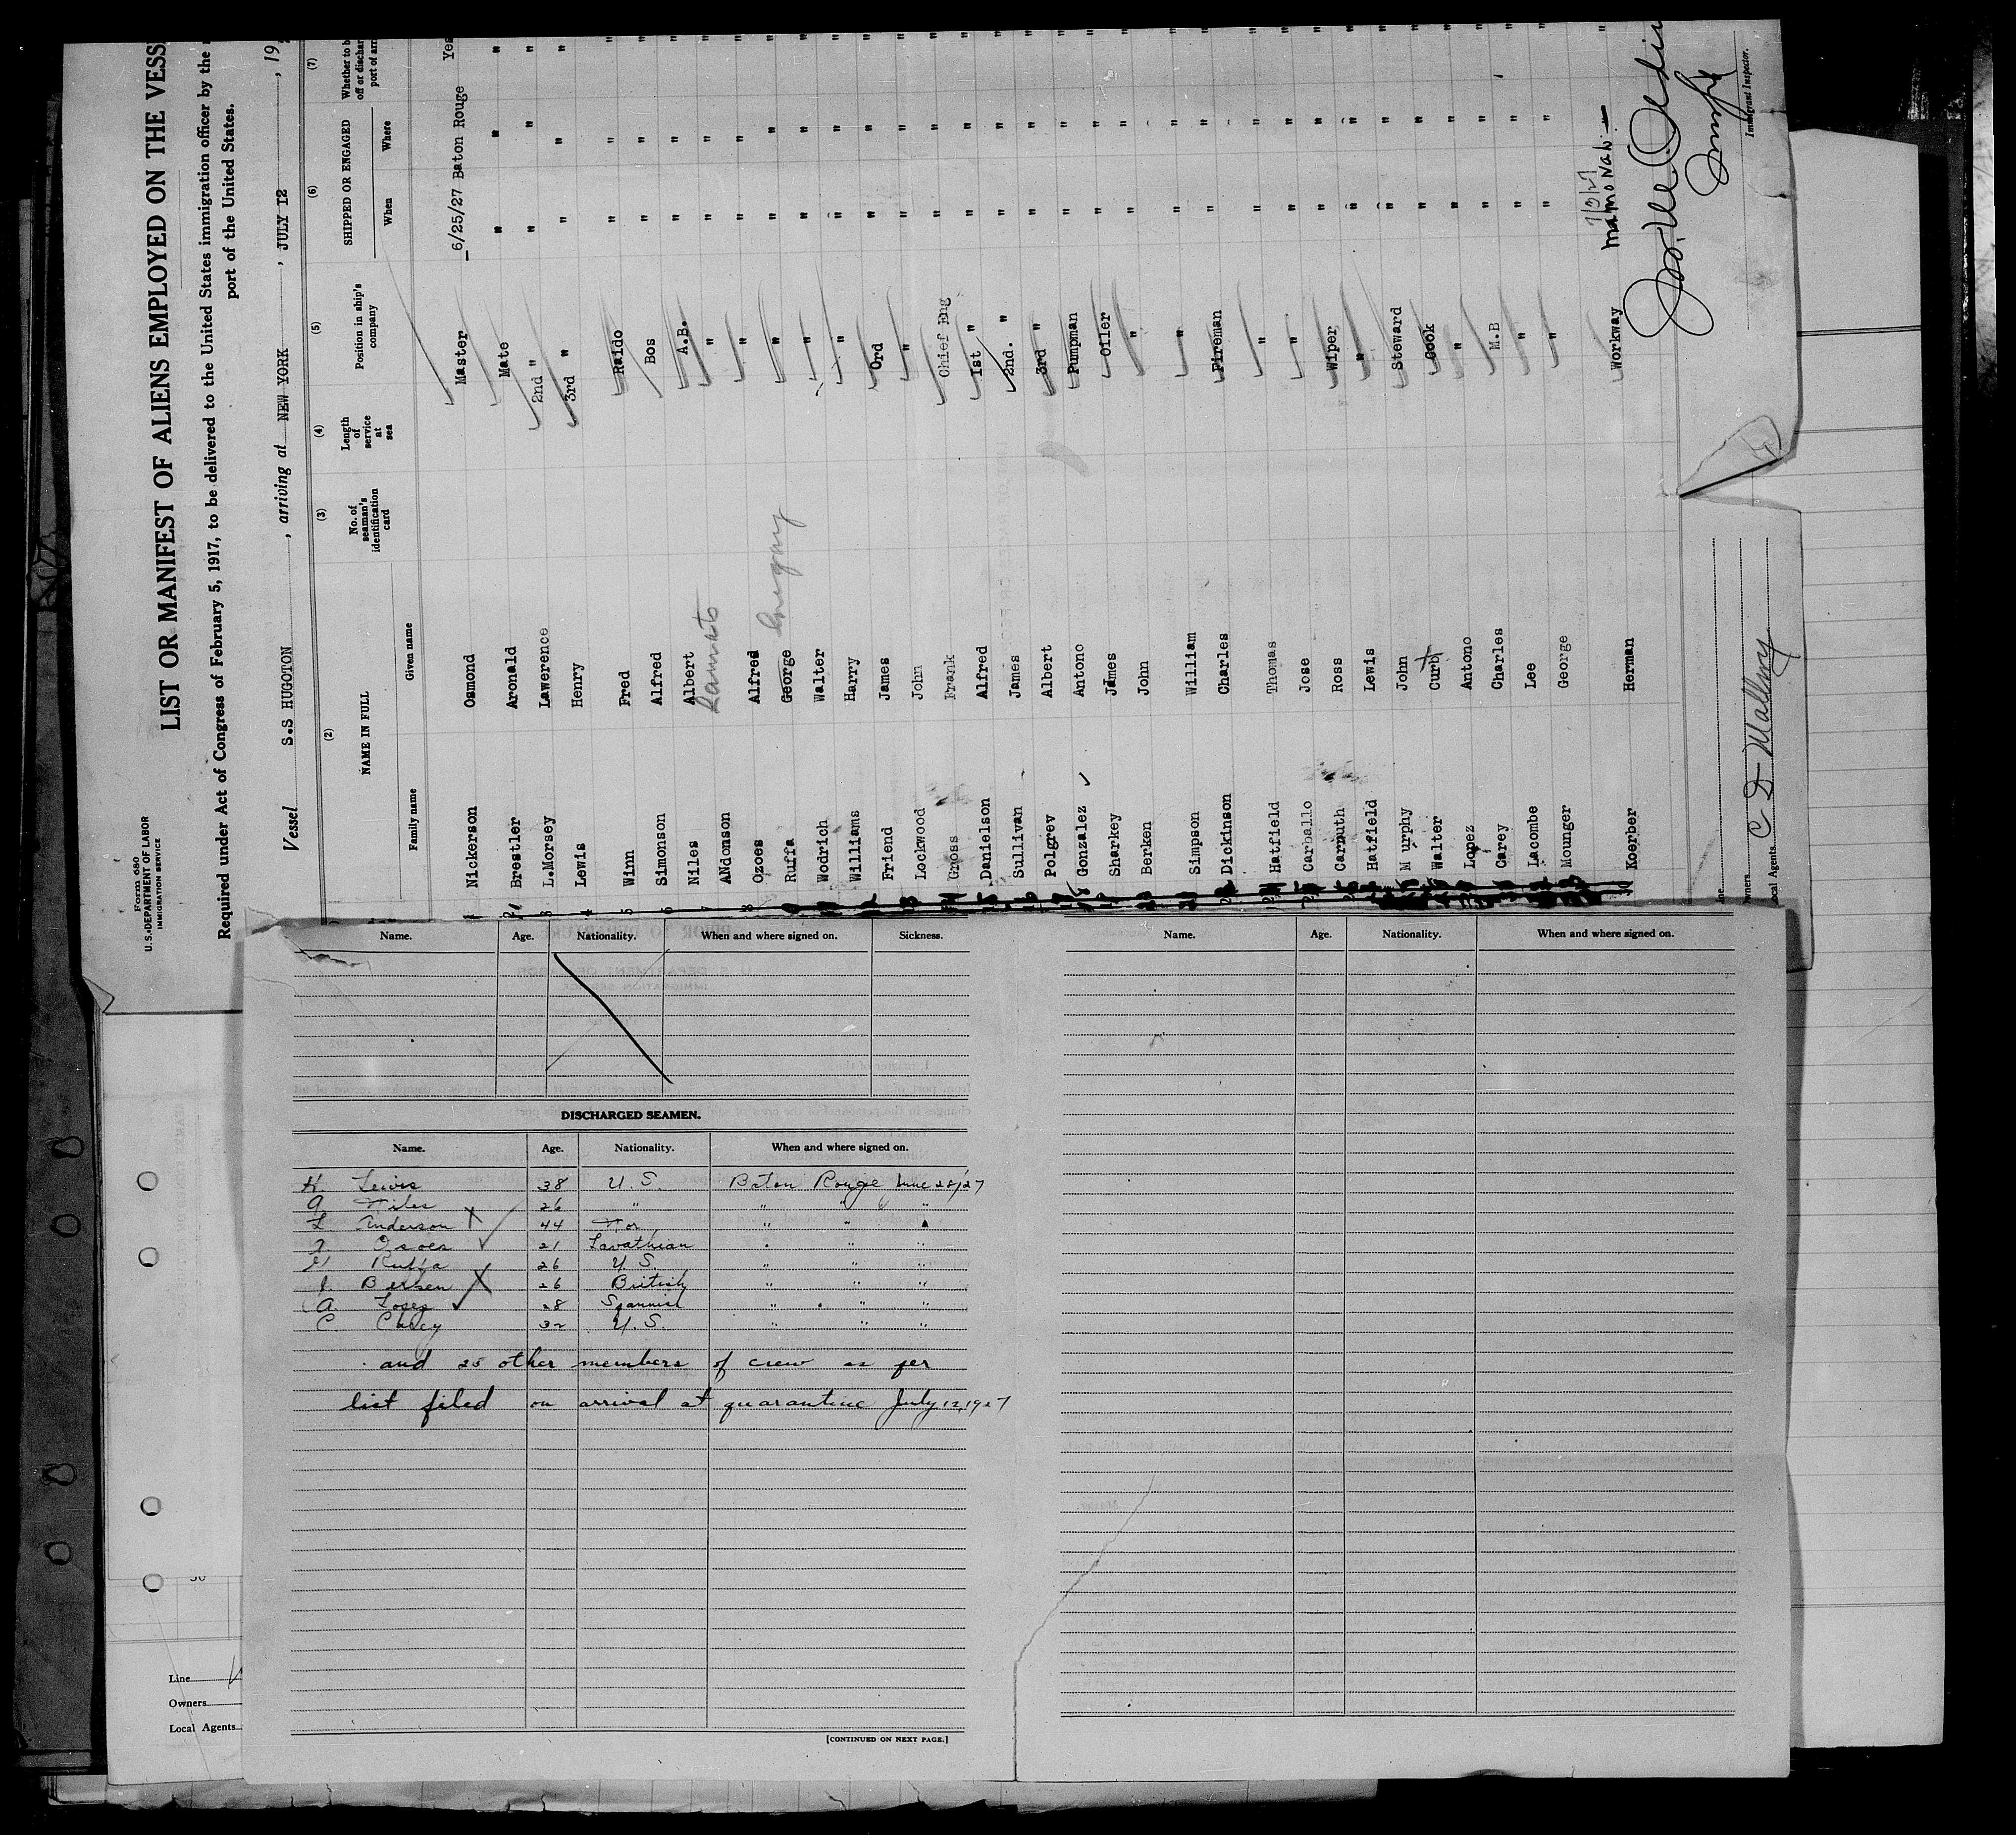 Form 680
U.S. DEPARTMENT OF LABOR
IMMIGRATION SERVICE
LIST OR MANIFEST OF ALIENS EMPLOYED ON THE VESS
Required under Act of Congress of February 5, 1917, to be delivered to the United States immigration officer by the
port of the United States.
Vessel S.S HUGOTON , arriving at NEW YORK , JULY 12 , 19
(2) (3) (4) (5) (6) (7)
NAME IN FULL No. of seaman's identification card Length of service at sea Position in ship's company SHIPPED OR ENGAGED Whether to b off or dischar port of arr
Family name Given name When Where
1 Nickerson Osmond Master 6/25/27 Baton Rouge Yes
2 Brestler Aronald Mate " " "
3 L.Morsey Lawerence 2nd " " " "
4 Lewis Henry 3rd " " " "
5 Winn Fred Raido " " "
6 Simonson Alfred Bos " " "
7 Niles Albert A.B. " " "
8 ANdonson " " " "
Ozoes Alfred " " " "
Ruffa George Gregory " " " "
Wodrich Walter " " " "
Williams Harry " " " "
Friend James Ord " " "
Lockwood John " " " "
Gross Frank Chief Eng " " "
Danielson Alfred 1st " " " "
Sullivan James 2nd. " " " "
Polgrev Albert 3rd " " " "
Gonzalez Antono Pumpman " " "
Sharkey James Oiler " " "
Berken John " " " "
Simpson William " " " "
Dickinson Charles Fireman " " "
Hatfield Thomas " " " "
Carballo Jose " " " "
Carmuth Ross Wiper " " "
Hatfield Lewis " " " "
M urphy John Steward " " "
Walter Curb Cook " " "
Lopez Antono " " " "
Carey Charles M.B " " "
Lacombe Lee " " " "
Mouger George " " " "
Koerber Herman Workway "
Immigrant Inspector.
ine
wners
ocal Agents C D Mallory
Name. Age. Nationality. When and where signed on. Sickness.
DISCHARGED SEAMEN.
Name. Age. Nationality. When and where signed on.
H. Lewis 38 U.S. Baton Rouge June 28/27
A Niles 26 " " " "
L Anderson X 44 Nor " "
Ozoes 21 Lavathian " " "
G. Ruffa 26 U.S. " " "
J. Berken X 26 British " " "
A. Lopez 28 Spannish " " "
C. Carey 32 U.S. " " "
and 25 other members of crew as per
list filed on arrival at quarantine July 12, 1927
[CONTINUED ON NEXT PAGE.]
Name. Age. Nationality. When and where signed on.
Line
Owners
Local Agents